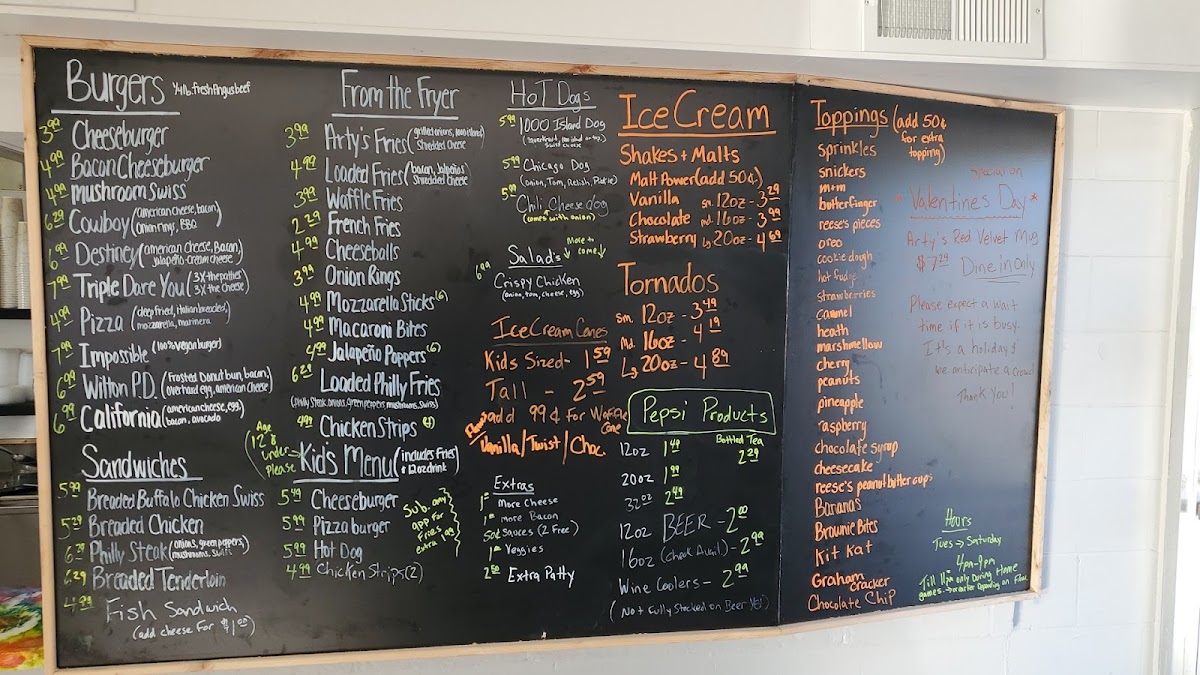 Burgers 1/4 lb. fresh Angus beef
3.99 Cheeseburger
4.99 Bacon Cheeseburger
4.99 mushroom Swiss
6.29 Cowboy (american cheese, bacon, onion rings, BBQ)
6.99 Destiney (american Cheese, Bacon, Jalapeño-cream cheese)
7.99 Triple Dare You (3X the patties 3X the Cheese)
4.99 Pizza (deep fried, Italian breaded, mozzarella, marinera)
7.99 Impossible (100% vegan burger)
6.99 Wilton P.D. (Frosted Donut bun, bacon, overhard egg, american cheese)
6.99 California (american cheese, egg, bacon, avocado)
Sandwiches
5.99 Breaded Buffalo Chicken Swiss
5.29 Breaded Chicken
6.29 Philly Steak (onions, green peppers, mushrooms, swiss)
6.29 Breaded Tenderloin
4.99 Fish Sandwich
(add cheese for $1.00)
From the Fryer
3.99 Arty's Fries (grilled onions, 1000 island, Shredded Cheese)
4.99 Loaded Fries (bacon, Jalapeños Shredded Cheese)
3.99 Waffle Fries
2.29 French Fries
4.99 Cheeseballs
3.99 Onion Rings
4.99 Mozzarella Sticks (6)
4.99 Macaroni Bites
4.99 Jalapeño Poppers (6)
6.29 Loaded Philly Fries
(Philly Steak, onions, green peppers, mushrooms, swiss)
4.99 Chicken Strips (4)
Age 12 & under Please
Kid's Menu (includes Fries & 12oz drink)
5.49 Cheeseburger
5.99 Pizza burger
5.99 Hot Dog
4.99 Chicken Strips (2)
Sub. any app for Fries extra 1.99
Hot Dogs
5.99 1000 Island Dog
5.99 Chicago Dog
(onion, Tom, Relish, Pickle)
5.99 Chili Cheese dog
(comes with onion)
Salads
More to come
6.99 Crispy Chicken
(onion, tom, cheese, egg)
Ice Cream Cones
Kids Sized - 1.59
Tall - 2.59
add 99¢ for Waffle Cone
Flavors Vanilla/Twist/Choc.
Extras
1.00 more Cheese
1.00 more Bacon
50¢ Sauces (2 Free)
1.00 Veggies
2.50 Extra Patty
Ice Cream
Shakes + Malts
Malt Power (add 50¢)
Vanilla sm. 12oz - 3.29
Chocolate md. 16oz - 3.99
Strawberry Lg 20oz - 4.69
Tornados
Sm. 12oz - 3.49
Md. 16oz - 4.19
Lg 20oz - 4.89
Pepsi Products
12oz 1.49
20oz 1.99
32oz 2.49
Bottled Tea
2.29
12oz BEER - 2.00
16oz (Check Avail) - 2.99
Wine Coolers - 2.99
(Not fully Stocked on Beer Yet)
Toppings (add 50¢ for extra topping)
sprinkles
snickers
m+m
butterfinger
reese's pieces
oreo
cookie dough
hot fudge
strawberries
caramel
heath
marshmellow
cherry
peanuts
pineapple
raspberry
chocolate syrup
cheesecake
reese's peanut butter cups
Bananas
Brownie Bites
Kit Kat
Graham cracker
Chocolate Chip
Special on
* Valentines Day *
Arty's Red Velvet Mug
$7.29 Dine in Only
Please expect a wait
time if it is busy.
It's a holiday &
we anticipate a crowd
Thank You!
Hours
Tues → Saturday
4pm-9pm
Till 11pm only During Home
games → or earlier depending on Flow